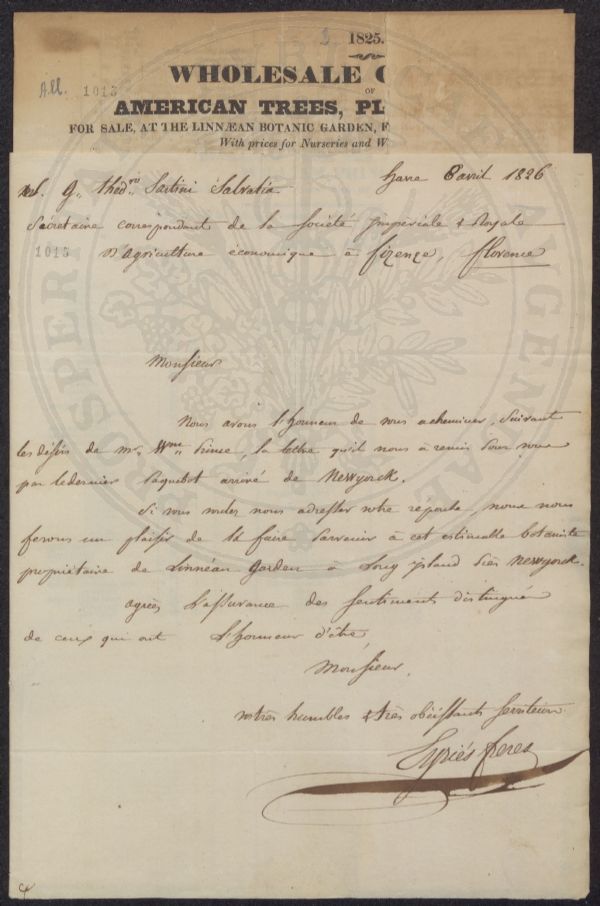 1825.
All. 1013
WHOLESALE C
OF
AMERICAN TREES, PL
FOR SALE, AT THE LINNÆAN BOTANIC GARDEN, F
With prices for Nurseries and W
havre 8 avril 1826
M. G. théod.re Sartini Salvatia
Sécrétaire correspondant de la Société impériale & Royale
1013 D'agriculture économique à firenze, florence
Monsieur
Nous avons l'honneur de vous acheminer, suivant
les désirs de mr. Wm. Prince, la lettre qu'il nous à remis pour vous
par le dernier paquebot arrivé de Newyorck.
Si vous voulez nous adresser votre réponse, nous nous
ferons un plaisir de la faire parvenir à cet estimable botaniste
propriétaire de Linnéan Garden à Long island près Newyorck.
agréez l'assurance des sentiments distingués
de ceux qui ont l'honneur d'être,
Monsieur,
vos très humbles & très obéissants serviteurs
Eyriès freres